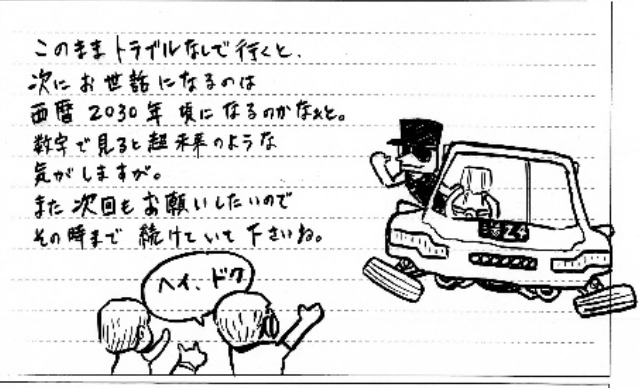 このままトラブルなしで行くと、
次にお世話になるのは
西暦2030年頃になるのかなぁと。
数字で見ると超未来のような
気がしますが。
また次回もお願いしたいので
その時まで続けていて下さいね。
ヘイ、ドク